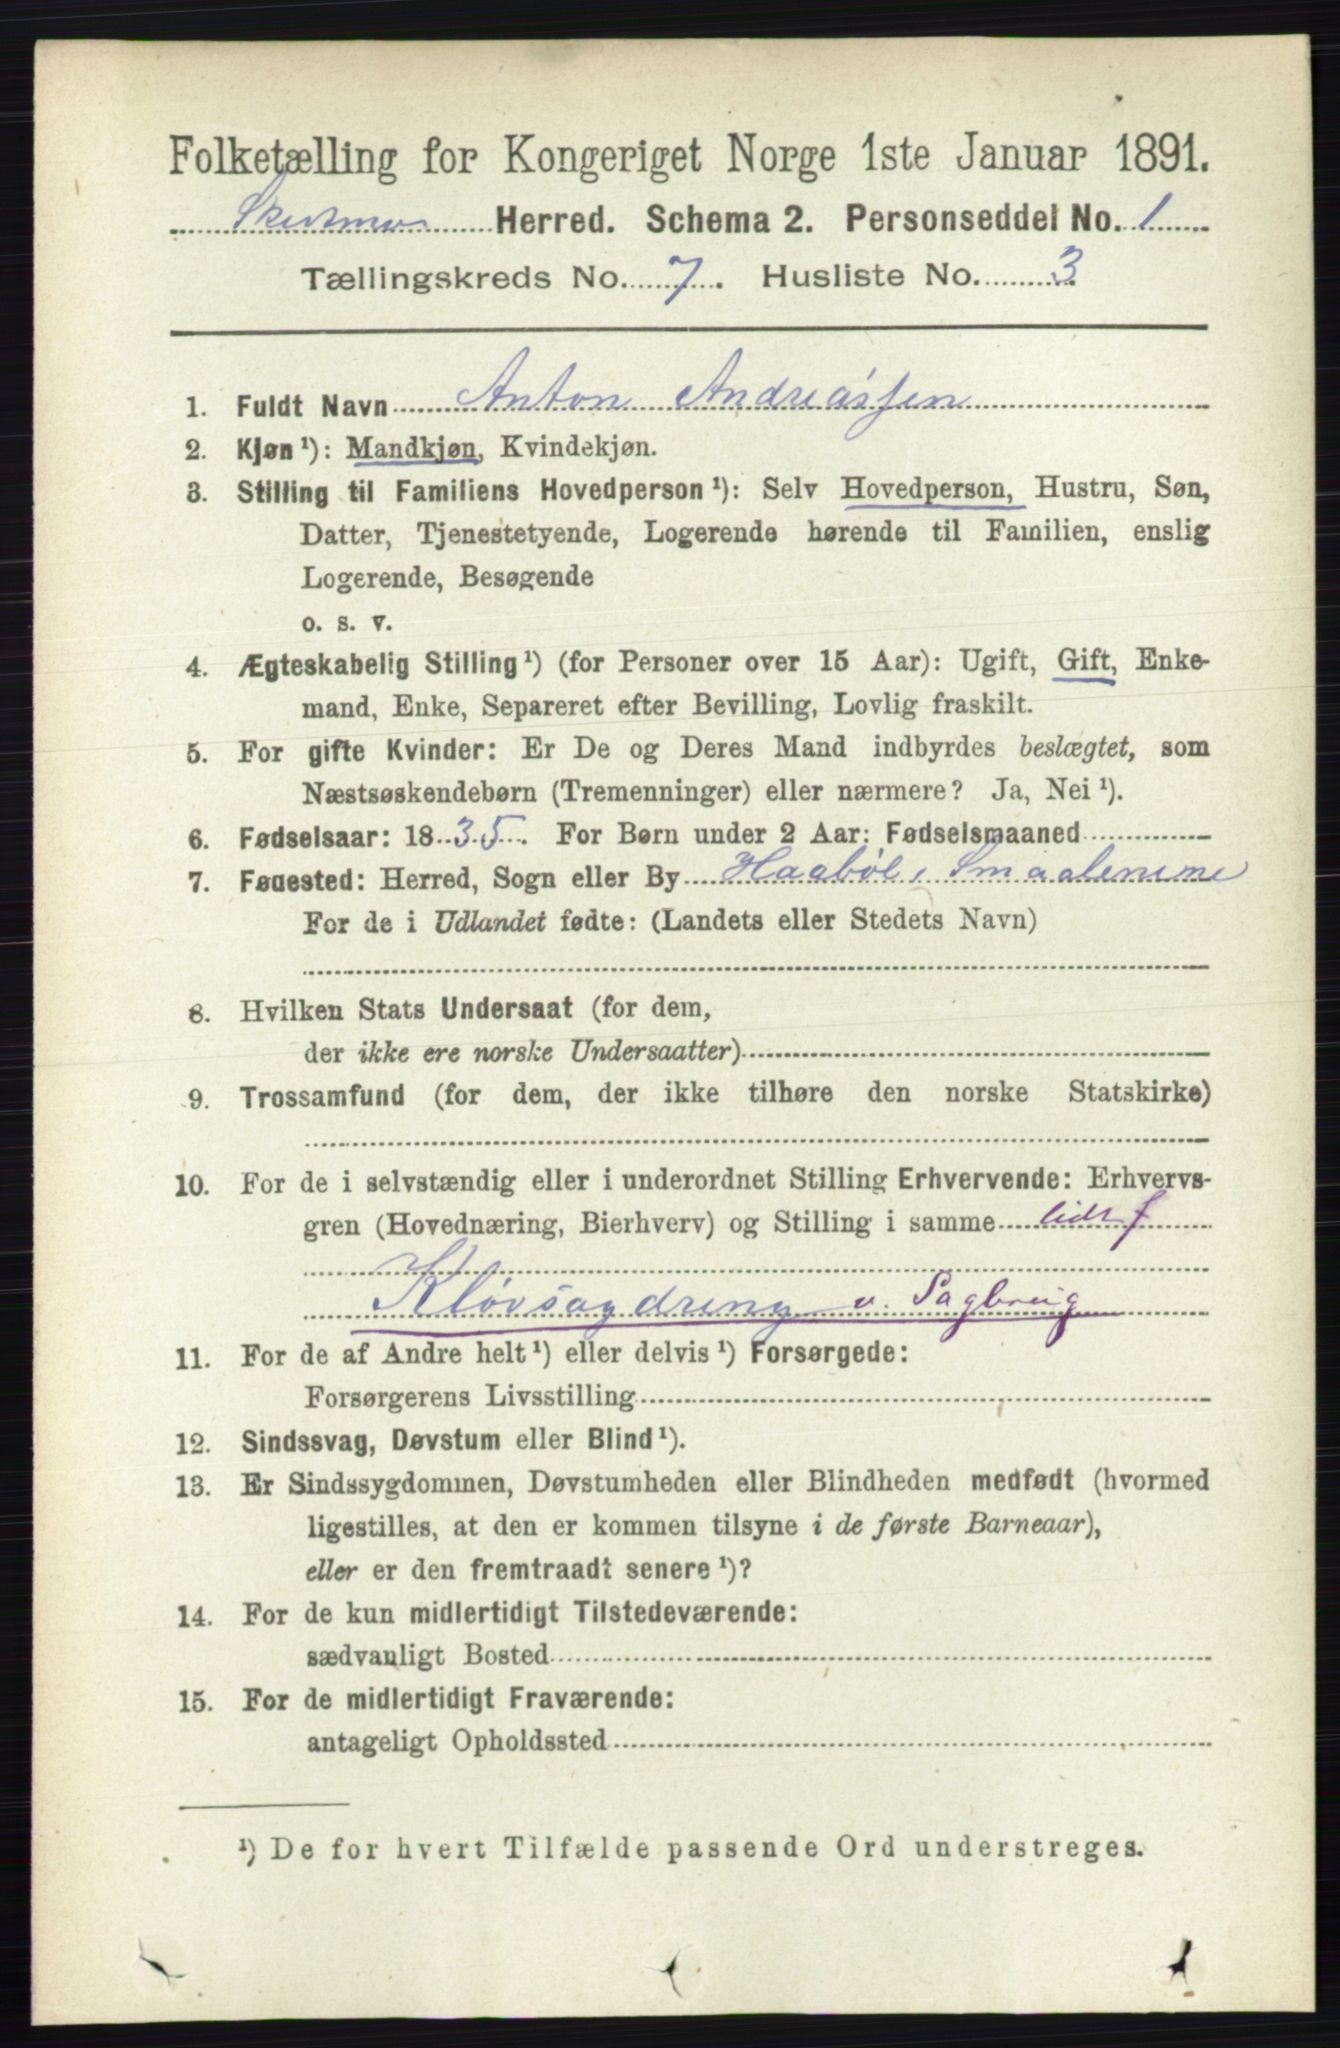 Folketælling for Kongeriget Norge 1ste Januar 1891.
Herred. Schema 2. Personseddel No. 1
Tællingskreds No. 7. Husliste No. 3
1. Fuldt Navn Anton Andreassen
2. Kjøn ¹): Mandkjøn, Kvindekjøn.
3. Stilling til Familiens Hovedperson ¹): Selv Hovedperson, Hustru, Søn,
Datter, Tjenestetyende, Logerende hørende til Familien, enslig
Logerende, Besøgende
o. s. v.
4. Ægteskabelig Stilling ¹) (for Personer over 15 Aar): Ugift, Gift, Enke-
mand, Enke, Separeret efter Bevilling, Lovlig fraskilt.
5. For gifte Kvinder: Er De og Deres Mand indbyrdes beslægtet, som
Næstsøskendebørn (Tremenninger) eller nærmere? Ja, Nei ¹).
6. Fødselsaar: 1835. For Børn under 2 Aar: Fødselsmaaned
7. Fødested: Herred, Sogn eller By Haabøl, Smaalenene
For de i Udlandet fødte: (Landets eller Stedets Navn)
8. Hvilken Stats Undersaat (for dem,
der ikke ere norske Undersaatter)
9. Trossamfund (for dem, der ikke tilhøre den norske Statskirke)
10. For de i selvstændig eller i underordnet Stilling Erhvervende: Erhvervs-
gren (Hovednæring, Bierhverv) og Stilling i samme
Kløvsagdreng v. Sagbrug
11. For de af Andre helt ¹) eller delvis ¹) Forsørgede:
Forsørgerens Livsstilling
12. Sindssvag, Døvstum eller Blind ¹).
13. Er Sindssygdommen, Døvstumheden eller Blindheden medfødt (hvormed
ligestilles, at den er kommen tilsyne i de første Barneaar),
eller er den fremtraadt senere ¹)?
14. For de kun midlertidigt Tilstedeværende:
sædvanligt Bosted
15. For de midlertidigt Fraværende:
antageligt Opholdssted
¹) De for hvert Tilfælde passende Ord understreges.